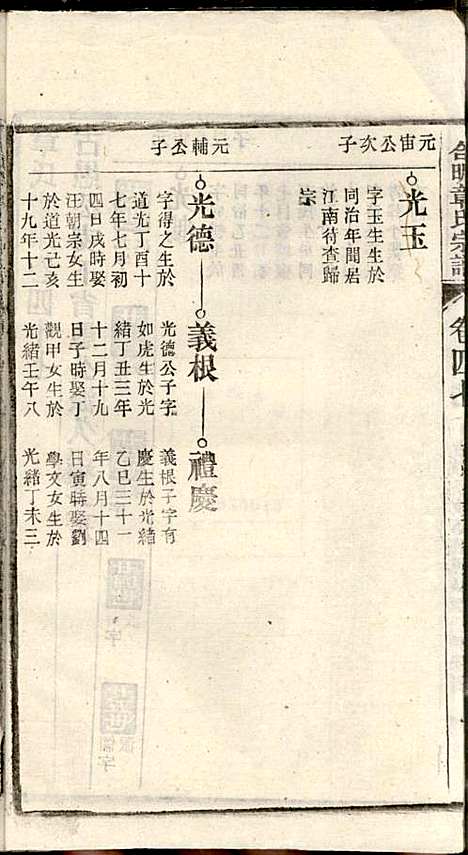 台明章氏宗譜
卷四七
元宙公次子
光玉
字玉生生於
同治年間居
江南待查歸
宗
元輔公子
光德
字得之生於
道光丁酉十
七年七月初
四日戌時娶
汪朝宗女生
於道光己亥
十九年十二
義根
光德公子字
如虎生於光
緒丁丑三年
十二月十九
日子時娶丁
觀甲女生於
光緒壬午八
禮慶
義根子字有
慶生於光緒
乙巳三十一
年八月十四
日寅時娶劉
學文女生於
光緒丁未三